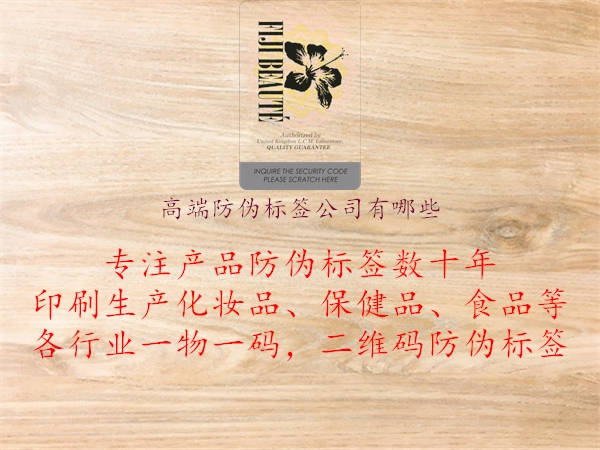 FIJI BEAUTÉ
Authorized by
United Kingdom L.C.M. Laboratory
QUALITY GUARANTEE
INQUIRE THE SECURITY CODE
PLEASE SCRATCH HERE
高端防伪标签公司有哪些
专注产品防伪标签数十年
印刷生产化妆品、保健品、食品等
各行业一物一码，二维码防伪标签